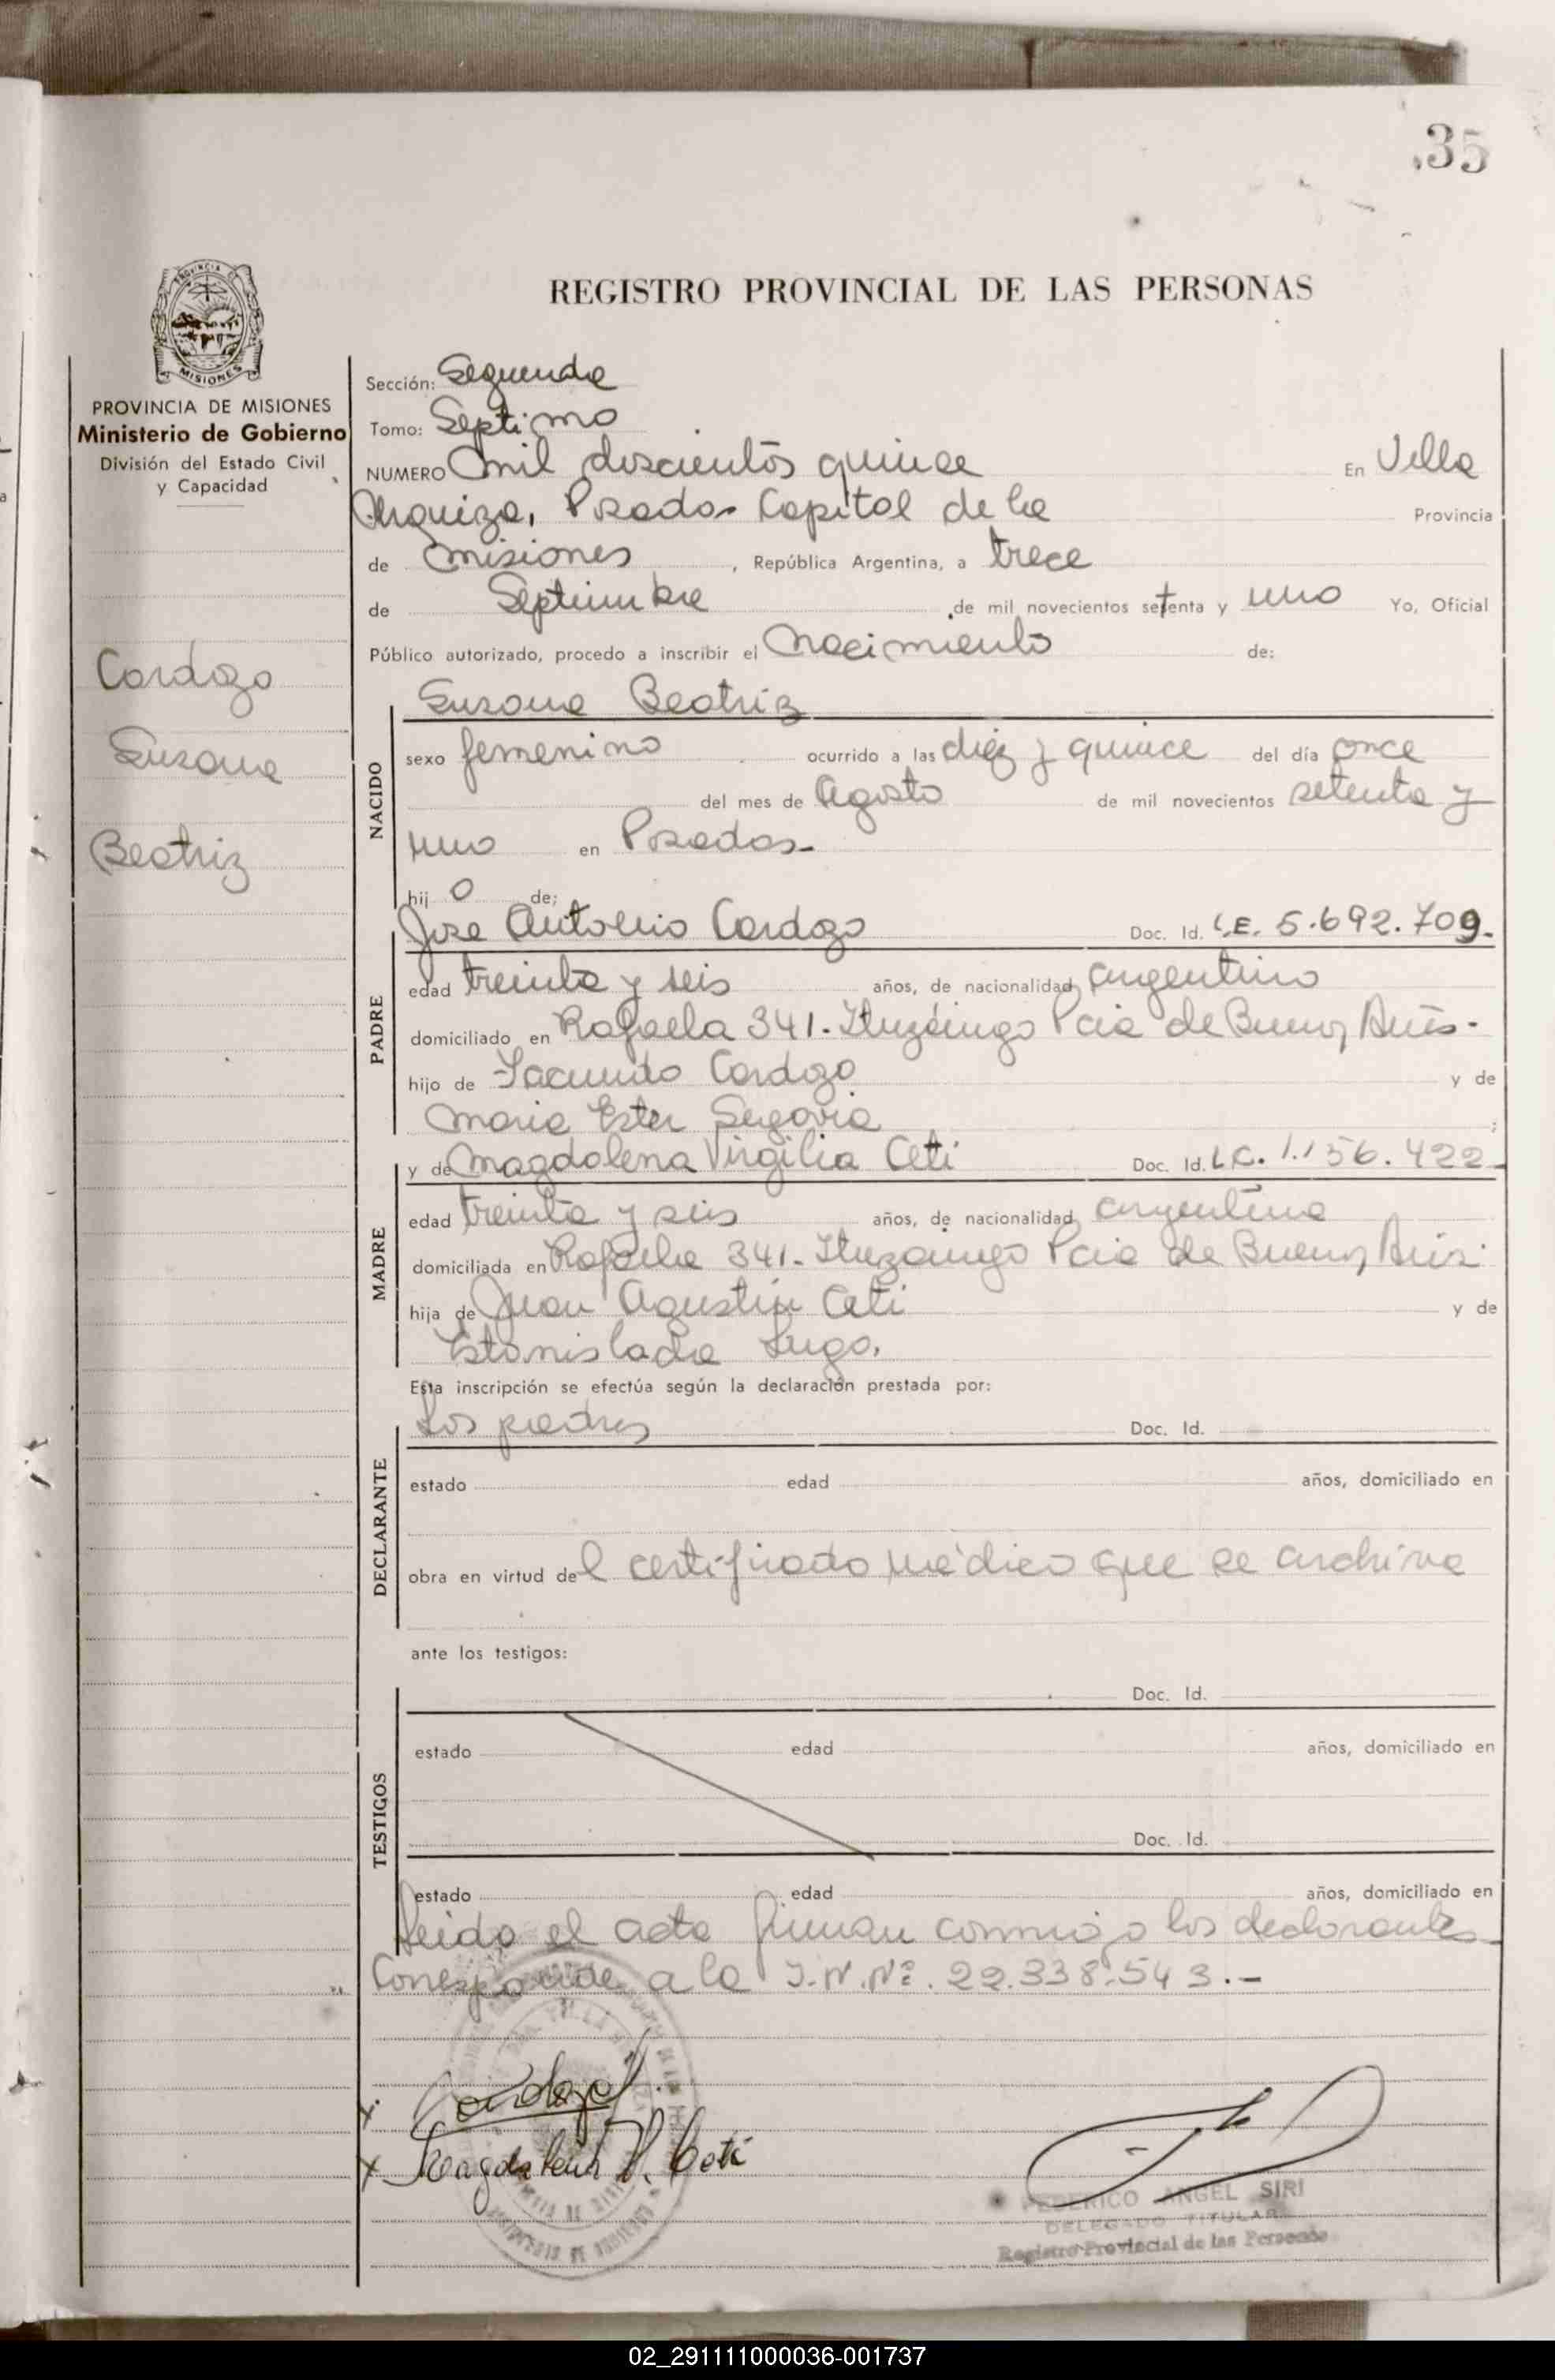 35
REGISTRO PROVINCIAL DE LAS PERSONAS
PROVINCIA DE MISIONES
Ministerio de Gobierno
División del Estado Civil
y Capacidad
Cardozo
Susana
Beatriz
Sección: Segunda
Tomo: Septimo
NUMERO mil doscientos quince En Villa
Urquiza, Posadas Capital de la Provincia
de misiones, República Argentina, a trece
de Septiembre de mil novecientos setenta y uno Yo, Oficial
Público autorizado, procedo a inscribir el nacimiento de:
Susana Beatriz
NACIDO
sexo femenino ocurrido a las diez y quince del día once
del mes de Agosto de mil novecientos setenta y
uno en Posadas-
hij a de;
José Antonio Cardozo Doc. Id. L.E. 5.692.709.
PADRE
edad treinta y seis años, de nacionalidad argentino
domiciliado en Rafaela 341- Ituzáingo Pcia de Buenos Aires.
hijo de Facundo Cardozo y de
maria Ester Segovia ;
y de Magdalena Virgilia Ceti Doc. Id. L.C. 1.156.422
MADRE
edad treinta y seis años, de nacionalidad argentina
domiciliada en Rafaela 341- Ituzaingo Pcia de Buenos Aires.
hija de Juan Agustin Ceti y de
Estanislada Lugo.
Esta inscripción se efectúa según la declaración prestada por:
Los padres Doc. Id.
DECLARANTE
estado edad años, domiciliado en
obra en virtud del certificado médico que se archiva
ante los testigos:
Doc. Id.
TESTIGOS
estado edad años, domiciliado en
Doc. Id.
estado edad años, domiciliado en
Leida el acta firman conmigo los declarantes
Corresponde a la I.N.Nº. 22.338.543.-
Cardozo
Magdalena V. Ceti
FEDERICO ANGEL SIRI
DELEGADO TITULAR
Registro Provincial de las Personas
02_291111000036-001737